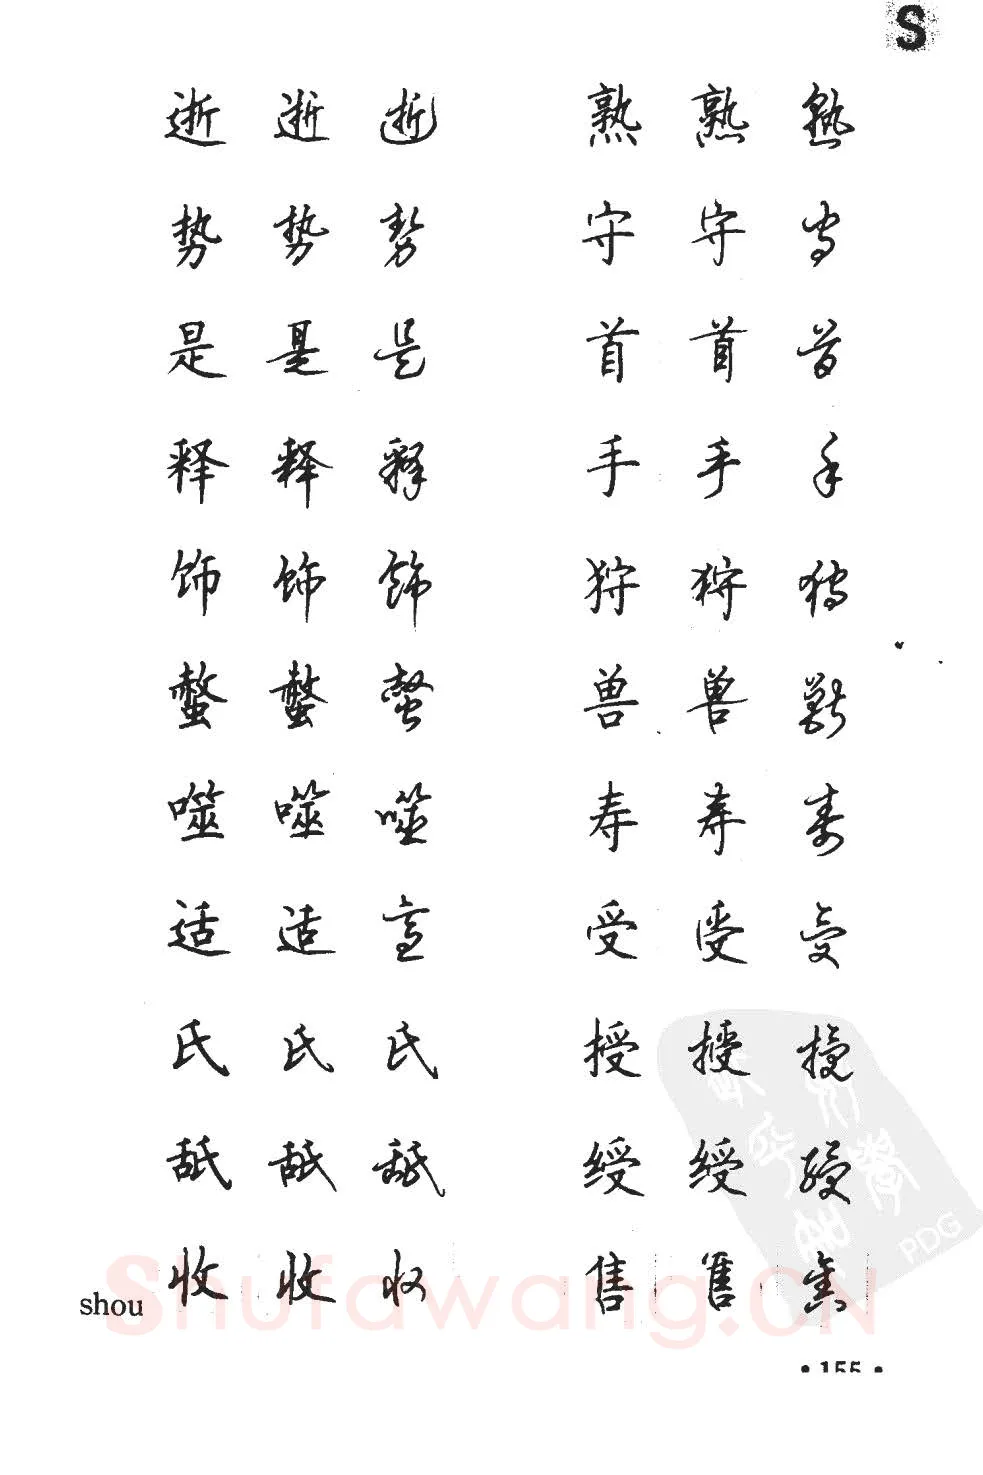 S
逝 逝 逝 熟 熟 熟
势 势 势 守 守 守
是 是 是 首 首 首
释 释 释 手 手 手
饰 饰 飾 狩 狩 狩
螫 螫 螫 兽 兽 獸
噬 噬 噬 寿 寿 寿
适 适 适 受 受 受
氏 氏 氏 授 授 授
舐 舐 舐 绶 绶 绶
shou 收 收 收 售 售 售
Shufawang.CN
PDG
• 155 •